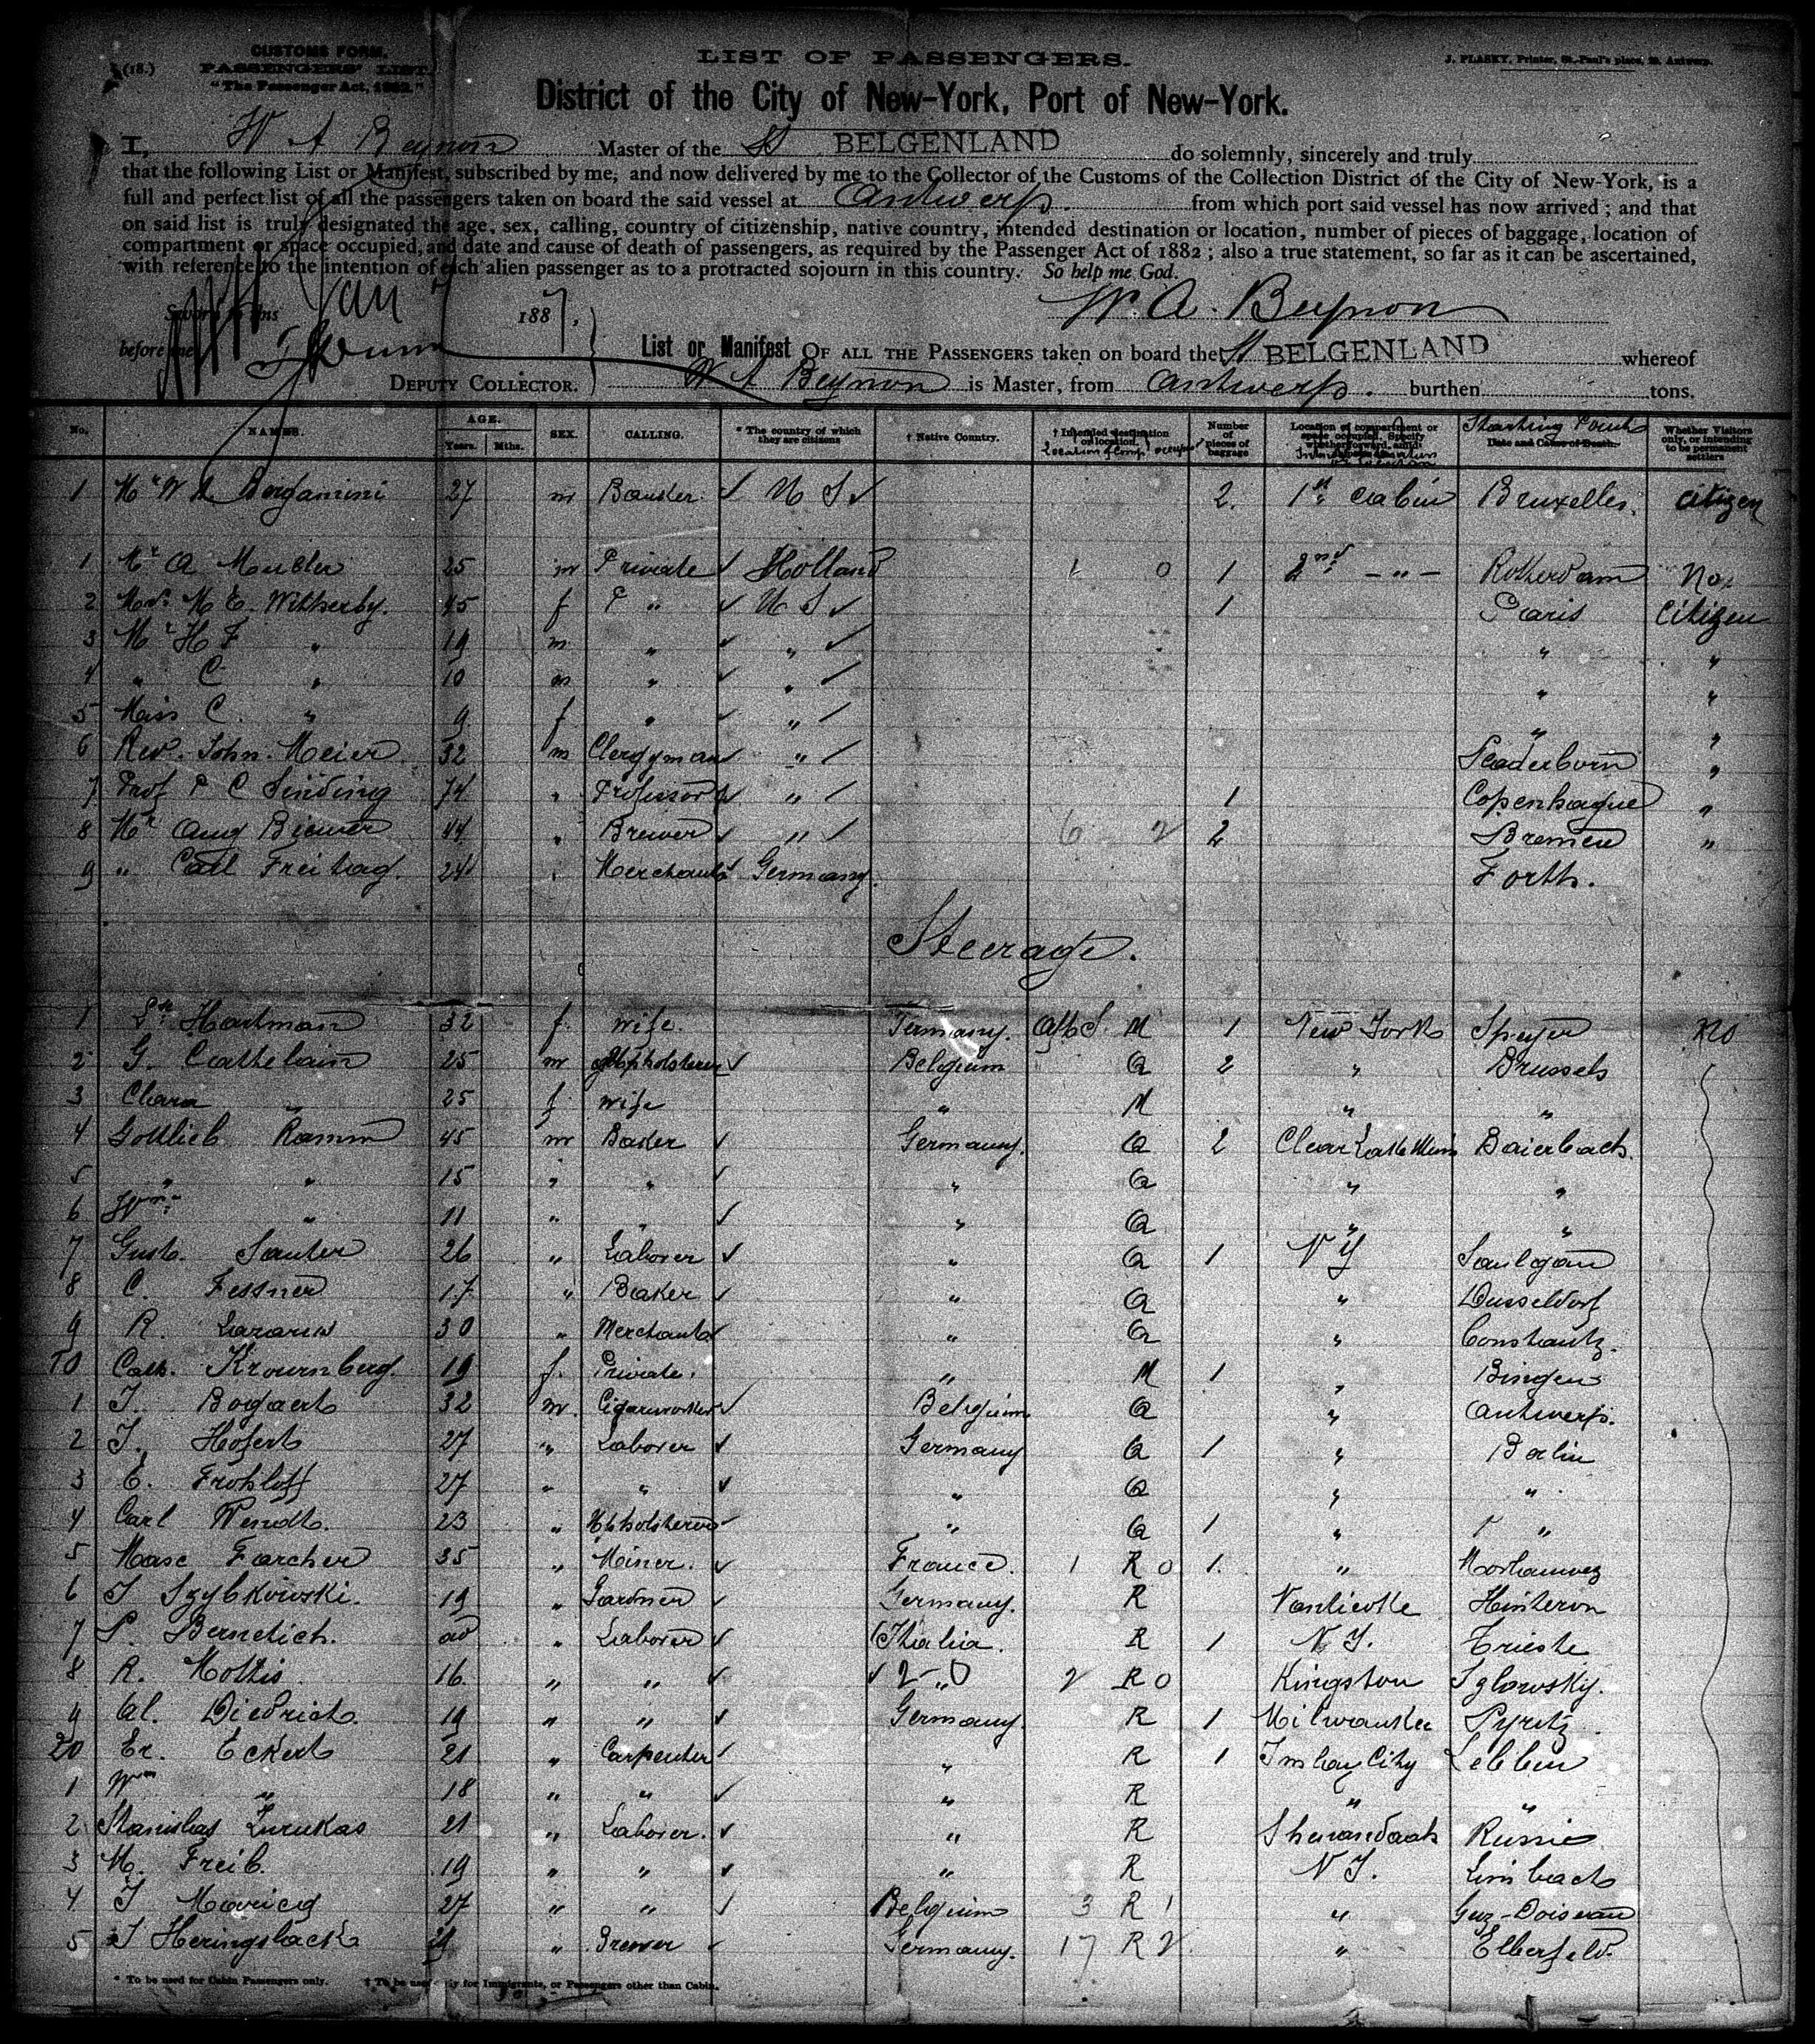 (18.)
CUSTOMS FORM.
PASSENGERS' LIST.
"The Passenger Act, 1882."
LIST OF PASSENGERS.
J. PLASKY, Printer, St.-Paul's place, Antwerp.
District of the City of New-York, Port of New-York.
I, W A Beynon Master of the SS BELGENLAND do solemnly, sincerely and truly
that the following List or Manifest, subscribed by me, and now delivered by me to the Collector of the Customs of the Collection District of the City of New-York, is a
full and perfect list of all the passengers taken on board the said vessel at Antwerp. from which port said vessel has now arrived; and that
on said list is truly designated the age, sex, calling, country of citizenship, native country, intended destination or location, number of pieces of baggage, location of
compartment or space occupied, and date and cause of death of passengers, as required by the Passenger Act of 1882; also a true statement, so far as it can be ascertained,
with reference to the intention of each alien passenger as to a protracted sojourn in this country. So help me God.
Sworn to this Jan 7 1887,
W. A. Beynon
before me
DEPUTY COLLECTOR.
List or Manifest OF ALL THE PASSENGERS taken on board the BELGENLAND whereof
W A Beynon is Master, from Antwerp. burthen tons.
No. NAMES. AGE. Years. Mths. SEX. CALLING. * The country of which they are citizens † Native Country. † Intended destination or location. Number of pieces of baggage Location of compartment or space occupied. Starting Point Date and Cause of Death. Whether Visitors only, or intending to be permanent settlers
1 Mr W A Bergamini 27 m Banker U S 2. 1st Cabin Bruxelles. Citizen
1 Mr A Mulder 25 m Private Holland 1 0 1 2nd – " – Rotterdam No.
2 Mrs M E. Witherby. 45 f P " U S 1 Paris Citizen
3 Mr H F " 19 m " " " "
4 " C " 10 m " " " "
5 Miss C. " 9 f " " " "
6 Rev. John. Meier 32 m Clergyman " Paderborn "
7 Prof P C Sinding 74 " Professor " 1 Copenhague "
8 Mr Aug Biewer 44 " Brewer " 6 2 2 Bremen "
9 " Carl Freitag. 24 " Merchant Germany. Forth.
Steerage.
1 Hartman 32 f. wife. Germany. M 1 New York Speyer No
2 G. Cathelain 25 m Upholsterer Belgium Q 2 " Brussels
3 Clara " 25 f. wife " M " "
4 Gottlieb Ramm 45 m Baker Germany. Q 2 Clear Lake Baierbach.
5 " " 15 " " " Q " "
6 Wm. " 11 " " " Q " "
7 Gust. Sauter 26 " Laborer " Q 1 N Y Saulgau
8 C. Fessner 17. " Baker " Q " Dusseldorf
9 R. Lazarus 30 " Merchant " Q " Constantz.
10 Cath. Krownberg. 19 f. Private. " M 1 " Bingen
1 J. Bogaert 32 m. Cigarworker Belgium Q " Antwerp.
2 J. Hofert 27 " Laborer Germany Q 1 " Berlin
3 E. Frohloff 27 " " " Q " "
4 Carl Wendt. 23 " Upholsterer " Q 1 " "
5 Farcher 35 " Miner. France. 1 R 0 1. "
6 J Szybkowski. 19 " Gardner Germany. R Nanticoke
7 P. Bernetich. " Laborer Ithalia. R 1 N Y. Trieste
8 R. Mottis 16. " " 2–0 " 2 R 0 Kingston
9 Al. Diedrich. 19 " " Germany. R 1 Milwaukee Pyritz.
20 Er. Eckert 21 " Carpenter " R 1 Imlay City Lebbin
1 Wm " 18 " " " R " "
2 Stanislas 21 " Laborer. " R Shenandoah Russie
3 M. Freib. 19 " " " R N Y. Limbach
4 J 27 " " Belgium 3 R 1 "
5 J Heringslack " Brewer Germany. 17 R 2 " Elberfeld.
* To be used for Cabin Passengers only. † To be used only for Immigrants, or Passengers other than Cabin.